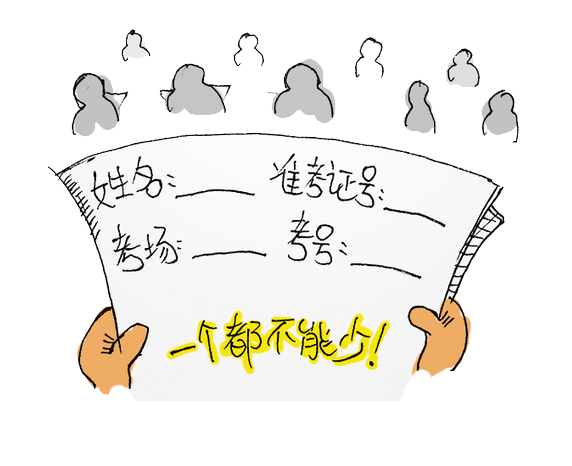 姓名：____ 准考证号：____
考场：____ 考号：____
一个都不能少！